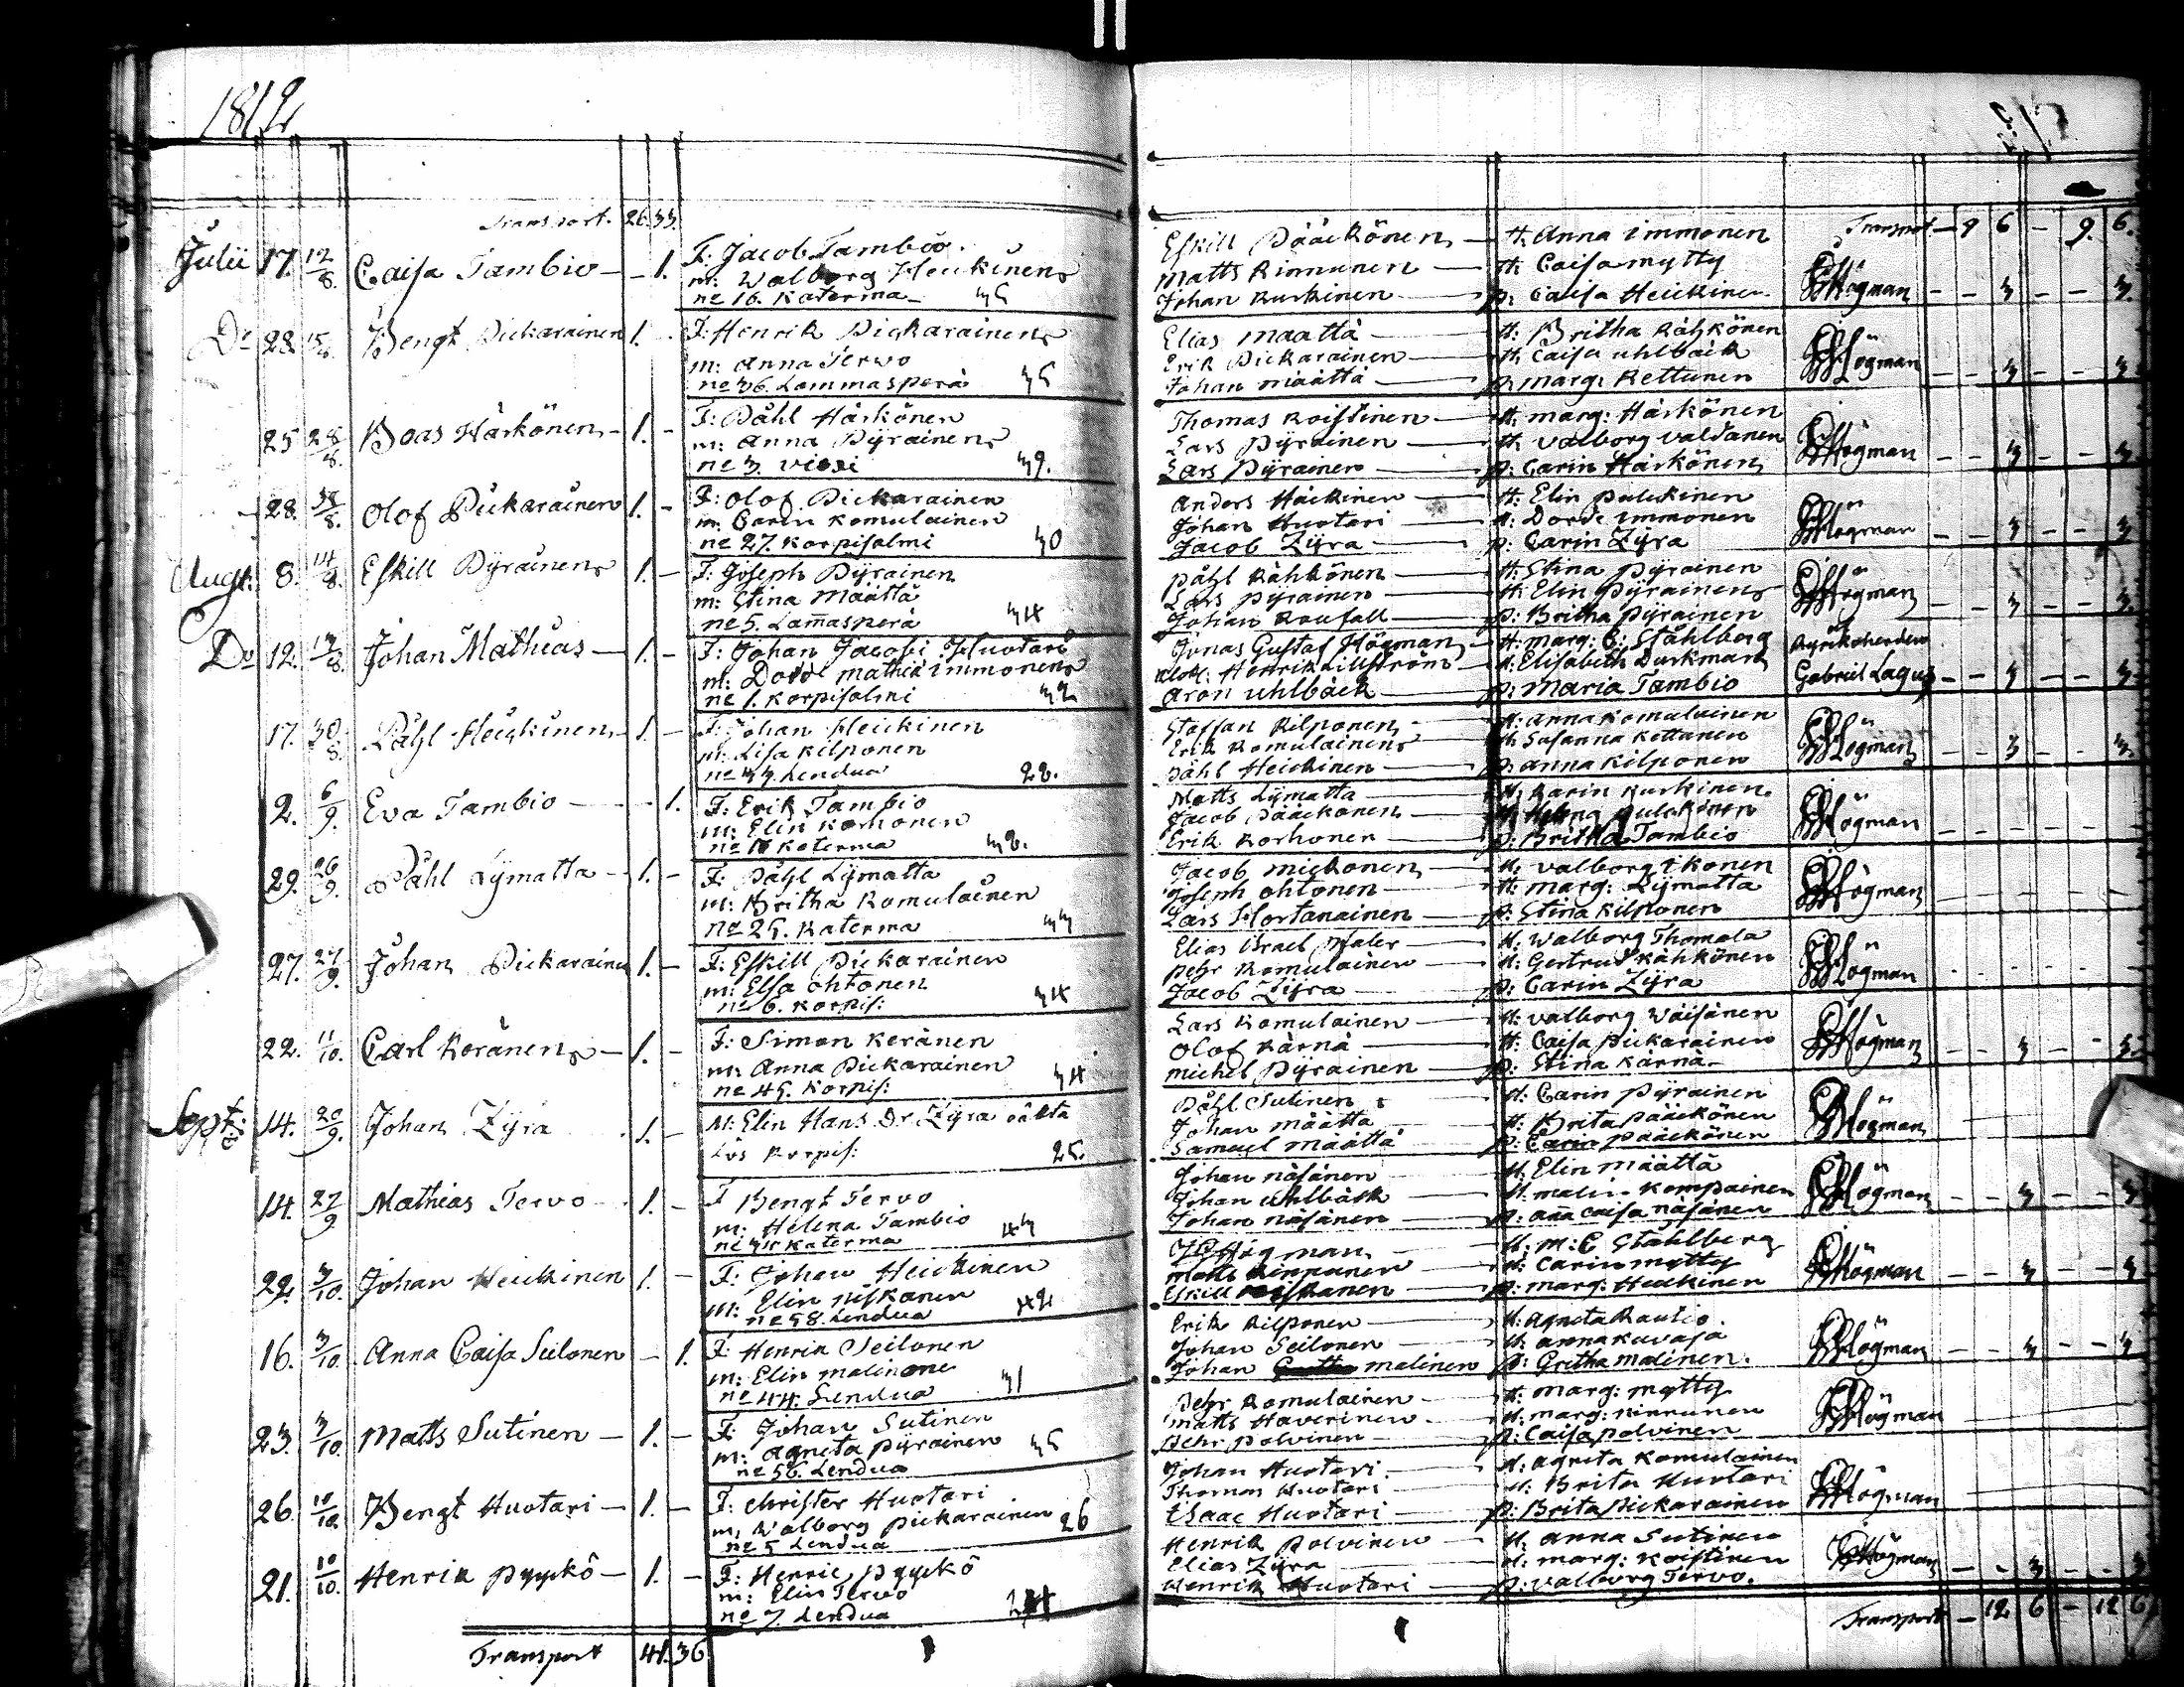 1812
Transport. 26. 33.
Julii 17. 12/8. Caisa Tambio — 1.
F: Jacob Tambio.
m: Walborg Heickinen
no 16. Katerma 35
Do 28. Bengt Pickarainen 1. -
F: Henrik Pickarainen
m: Anna Tervo
no 36. Lammasperä 35
25 28/8. Boas Härkönen - 1. -
F: Påhl Härkönen
m: Anna Pyrainen
no 3. Viexi 39.
28. Olof Pickarainen 1. -
F: Olof Pickarainen
m: Carin Komulainen
no 27. Korpisalmi 30
Augt: 8. 14/8. Eskill Pyrainen 1. -
F: Joseph Pyrainen
m: Stina Määttä
no 5. Lam̄asperä 34
Do 12. 13/8. Johan Mathias — 1. -
F: Johan Jacobi Huotari
m: Dorde Mathiæ immonen
no 1. Korpisalmi 32
17. 30/8. Påhl Heickinen - 1. -
F: Johan Heickinen
m: Lisa Kilponen
no 33. Lendua 28.
2. 6/9. Eva Tambio - - 1.
F: Erik Tambio
m: Elin Korhonen
no 16 Katerma 38.
29. 26/9. Påhl Lymatta - 1. -
F: Påhl Lymatta
m: Britha Komulainen
no 25. Katerma 33
27. 27/9. Johan Pickarainen 1. -
F: Eskill Pickarainen
m: Elsa Ohtonen
no 6. Korpis: 34
22. 11/10. Carl Keränen - 1. -
F: Simon Keränen
m: Anna Pickarainen
no 45. Korpis: 34
Sept: 14. 20/9. Johan Zyra 1. -
M: Elin Hans Dr Zyra oäkta
Lös Korpis: 25.
14. 27/9 Mathias Tervo - 1. -
F Bengt Tervo
m: Helena Tambio
no 34 Katerma 43
22. 3/10. Johan Heickinen 1. -
F: Johan Heickinen
m: Elin Niskanen
no 58. Lendua 42
16. 3/10. Anna Caisa Seilonen - 1.
F: Henrik Seilonen
m: Elin Malinen
no 44. Lendua 31
23. 3/10. Matts Sutinen - 1. -
F: Johan Sutinen
m: Agneta Pyrainen
no 56. Lendua 35
26. 10/10. Bengt Huotari - 1. -
F: Christer Huotari
m: Walborg Pickarainen
no 5 Lendua 26
21. 10/10. Henrik Pyyckö - 1. -
F: Henric Pyyckö
m: Elin Tervo
no 7. Lendua
Transport 41. 36
Eskill Pääckönen — H. Anna Immonen Transport - 9 6 - 9. 6.
Matts Kinnunen — H. Caisa Mytty
Johan Kurkinen — p: Caisa Heickinen Högman - - 3 - - 3.
Elias Maatta — H: Britha Kähkönen
Erik Pickarainen — H. Caisa Uhlbäck
Johan Määttä — p. Marg: Kettunen Högman - - 3 - - 3
Thomas Koistinen — H. Marg: Härkönen
Lars Pyrainen — H. Valborg Valdanen
Lars Pyrainen — p: Carin Härkönen Högman - - 3 - - 3
Anders Häickinen — H. Elin Pulckinen
Johan Huotari — H: Dorde Immonen
Jacob Zyra — p: Carin Zyra Högman - - 3 - - 3
Påhl Kähkönen — H. Stina Pyrainen
Lars Pyrainen — H. Elin Pyrainen
Johan Roufall — p: Britha Pyrainen Högman - - 3 - - 3.
Jonas Gustaf Högman — H: Marg: C: Ståhlberg Kyrkoherden
Henrik Lillström — H: Elisabeth Durkman
Aron Uhlbäck — p: Maria Tambio Gabriel Lagus - - 3 - - 3
Staffan Kilponen — H: Anna Komulainen
Erik Komulainen — H. Susanna Kettunen
Påhl Heickinen — p. Anna Kilponen Högman - - 3 - - 3.
Matts Lymatta — H: Karin Kurkinen.
Jacob Pääckönen — H. Helena Pulckinen
Erik Korhonen — p: Britha Tambio Högman - - - - - -
Jacob Mickonen — H. Valborg Ikonen
Joseph Ohtonen — H: Marg: Lymatta
Lars Hortanainen — p: Stina Kilponen Högman
Elias Israel Maler — H. Walborg Thomala
Pehr Komulainen — H: Gertrud Kähkönen
Jacob Zyra — p: Carin Zyra Högman
Lars Komulainen — H: Valborg Wäisänen
Olof Kärnä — H: Caisa Pickarainen
Michel Pyrainen — p: Stina Kärnä Högman - - 3 - - 3.
Påhl Sutinen — H. Carin Pyrainen
Johan Määttä — H: Brita Pääckönen
Samuel Määttä — p: Carin Pääckönen Högman
Johan Näsänen — H. Elin Määttä
Johan Uhlbäck — H. Malin Kompainen
Johan Näsänen — p: Ana Caisa Näsänen Högman - - 3 - - 3
JG Högman — H: M: C Ståhlberg
Matts Kinnunen — H: Carin Mytty
Eskill Niskanen — p: Marg: Heickinen Högman - - 3 - - 3
Erik Kilponen — H: Agneta Rautio
Johan Seilonen — H: Anna Kuvaja
Johan Malinen p: Gretha Malinen. Högman - - 3 - - 3
Pehr Komulainen — H: Marg: Mytty
Matts Haverinen — H: Marg: Kinnunen
Pehr Polvinen — p: Caisa Polvinen Högman
Johan Huotari — H: Agneta Komulainen
Thomas Huotari — H: Brita Huotari
Isaac Huotari — p: Brita Pickarainen Högman
Henrik Polvinen — H: Anna Sutinen
Elias Zyra — H: Marg: Koistinen
Henrik Huotari — p: Valborg Tervo. Högman - - 3 - - 3
Transport - 12 6 - 12 6